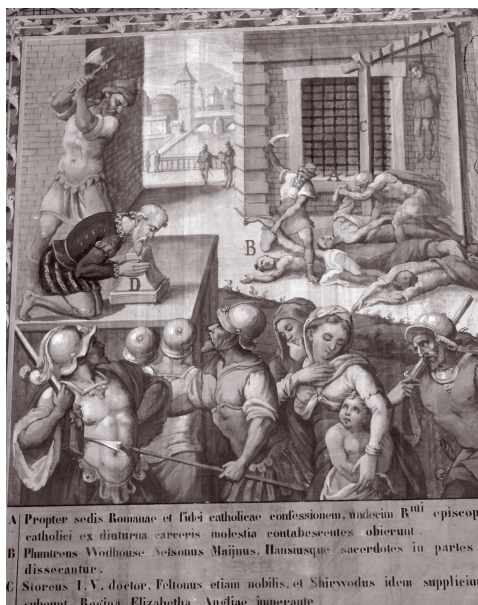 C
A
B
D
A Propter sedis Romanae et fidei catholicae confessionem, undecim Rmi episcop
catholici ex diuturna carceris molestia contabescentes obierunt.
B Plumtreus Wodhouse Nelsonus Maijnus, Hansusque sacerdotes in partes
dissecantur.
C Storeus I. V. doctor, Feltonus etiam nobilis, et Shirwodus idem supplicium
subeunt, Regina Elizabetha Angliae imperante